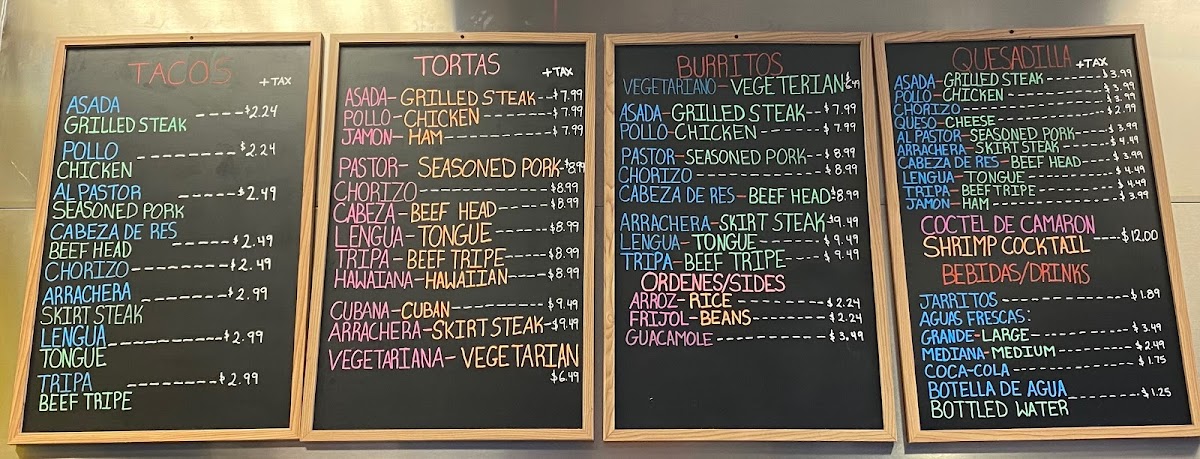 TACOS
+ TAX
ASADA -----$2.24
GRILLED STEAK
POLLO ----------$2.24
CHICKEN
AL PASTOR ---------$2.49
SEASONED PORK
CABEZA DE RES ------$2.49
BEEF HEAD
CHORIZO ---------$2.49
ARRACHERA --------$2.99
SKIRT STEAK
LENGUA ----------$2.99
TONGUE
TRIPA ---------$2.99
BEEF TRIPE
TORTAS
+TAX
ASADA-GRILLED STEAK--$7.99
POLLO-CHICKEN------$7.99
JAMON-HAM--------$7.99
PASTOR-SEASONED PORK-$8.99
CHORIZO------------$8.99
CABEZA-BEEF HEAD-----$8.99
LENGUA-TONGUE------$8.99
TRIPA-BEEF TRIPE-----$8.99
HAWAIANA-HAWAIIAN-----$8.99
CUBANA-CUBAN---------$9.49
ARRACHERA-SKIRT STEAK-$9.49
VEGETARIANA-VEGETARIAN
$6.49
BURRITOS
VEGETARIANO-VEGETERIAN
ASADA-GRILLED STEAK---$7.99
POLLO-CHICKEN-------$7.99
PASTOR-SEASONED PORK--$8.99
CHORIZO-------------$8.99
CABEZA DE RES-BEEF HEAD$8.99
ARRACHERA-SKIRT STEAK$9.49
LENGUA-TONGUE-------$9.49
TRIPA-BEEF TRIPE------$9.49
ORDENES/SIDES
ARROZ-RICE----------$2.24
FRIJOL-BEANS--------$2.24
GUACAMOLE----------$3.99
QUESADILLA
+TAX
ASADA-GRILLED STEAK----$3.99
POLLO-CHICKEN--------$3.99
CHORIZO------------$3.99
QUESO-CHEESE--------$2.99
AL PASTOR-SEASONED PORK--$3.99
ARRACHERA-SKIRT STEAK---$4.49
CABEZA DE RES-BEEF HEAD---$3.99
LENGUA-TONGUE-------$4.49
TRIPA-BEEF TRIPE-----$4.49
JAMON-HAM---------$3.99
COCTEL DE CAMARON
SHRIMP COCKTAIL ----$12.00
BEBIDAS/DRINKS
JARRITOS ------------$1.89
AGUAS FRESCAS:
GRANDE-LARGE---------$3.49
MEDIANA-MEDIUM--------$2.49
COCA-COLA-----------$1.75
BOTELLA DE AGUA---------$1.25
BOTTLED WATER